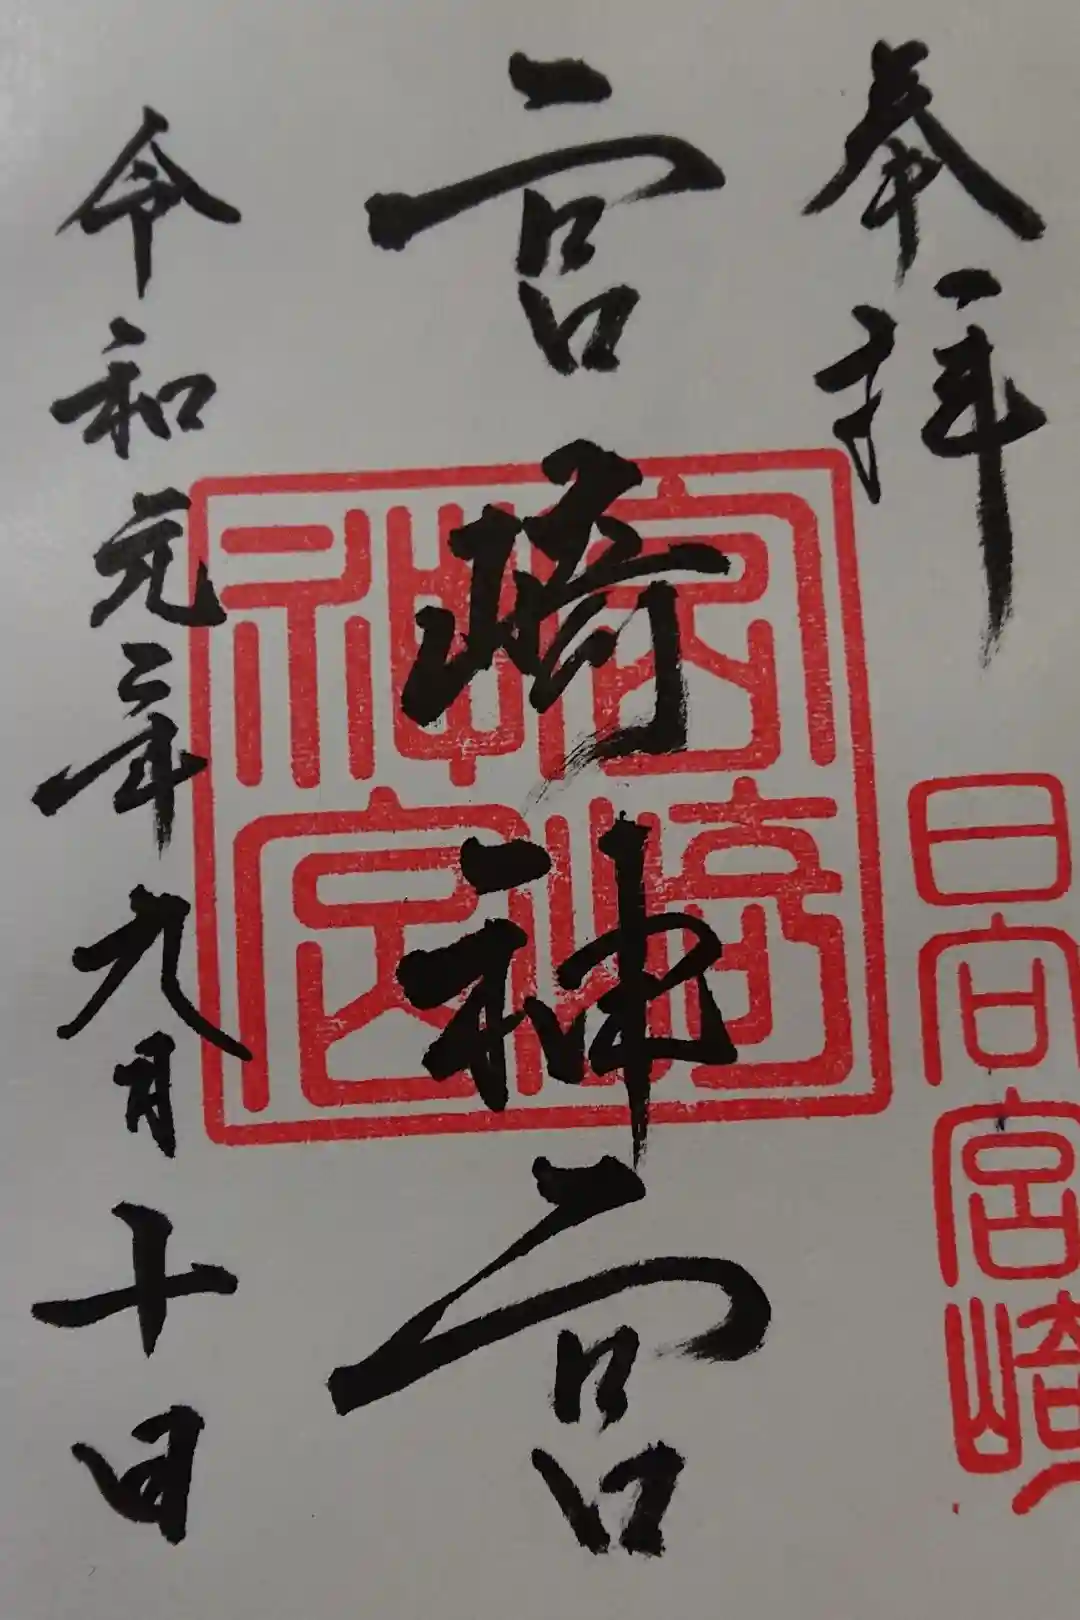 奉拝
日向宮崎
宮崎神宮
宮崎
神宮
令和元年九月十日